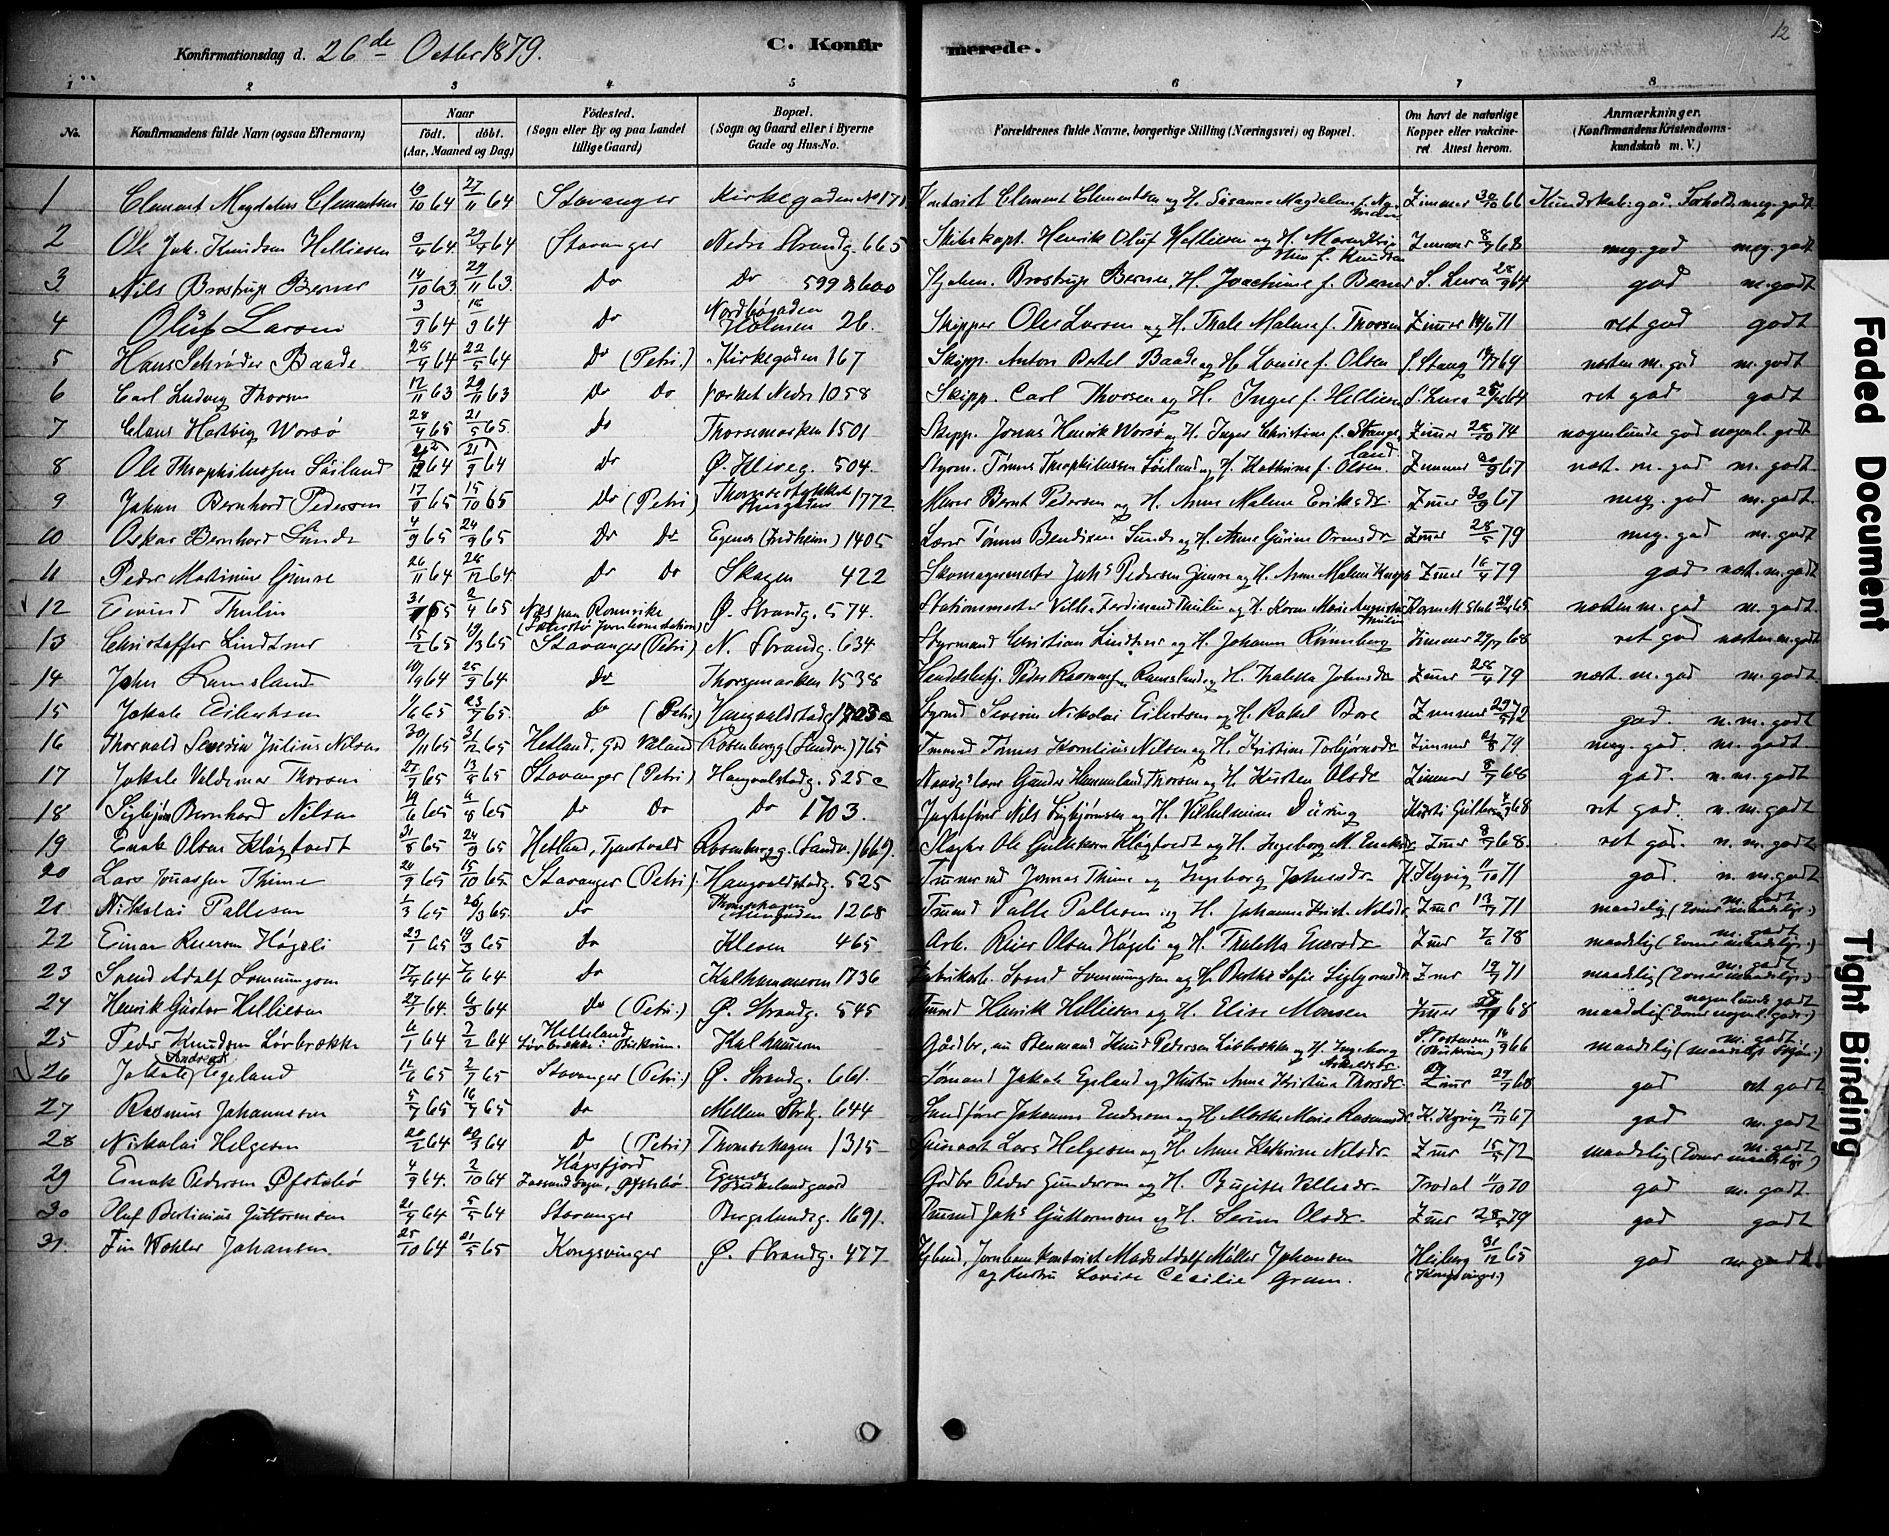 Konfirmationsdag d. 26de Octbr 1879.
C. Konfirmerede.
12
1 2 3 4 5 6 7 8
No.
Konfirmandens fulde Navn (ogsaa Efternavn)
Naar
födt. döbt.
(Aar, Maaned og Dag)
Födested.
(Sogn eller By og paa Landet
tillige Gaard)
Bopæl.
(Sogn og Gaard eller i Byerne
Gade og Hus-No.
Forældrenes fulde Navne, borgerlige Stilling (Næringsvei) og Bopæl.
Om havt de naturlige
Kopper eller vakcine-
ret Attest herom.
Anmærkninger.
(Konfirmandens Kristendoms-
kundskab m. V.)
1 Clement Magdalus Clementsen 19/10 64 27/11 64 Stavanger Kirkegaden No 171 Clement Clementsen og H. Susanne Magdalene f. Zimmer 30/10 66 Kundskab: god. Forhold: meg. godt
2 Ole Joh. Knudsen Helliesen 64 64 Stavanger Nedre Strandg. 665 Skibskapt. Henrik Oluf Helliesen og H. f. Knudsen Zimmer 8/9 68 meg. god meg. godt
3 Nils Brostrup Berner 14/10 63 29/11 63 Do Do 599 & 600 Kjøbm. Brostrup Berner, H. Joachime f. Berner S. Lura 28/9 64 god m. godt
4 Oluf Larsen 3/9 64 18/9 64 Do Nordbøgaden Holmen 26. Skipper Ole Larsen og H. Thale Malene f. Thorsen Zimer 14/6 71 ret god godt
5 Hans Schrøder Baade 28/4 64 22/5 64 Do (Petri) Kirkegaden 167 Skipp. Anton Bertel Baade og H. Louise f. Olsen S. Stang 69 næsten m. god m. godt
6 Carl Ludvig Thorsen 12/11 63 29/11 63 Do Do Værket Nedre 1058 Skipp. Carl Thorsen og H. Inger f. Helliesen S. Lura 64 ret god godt
7 Claus Hartvig Worsø 28/4 65 21/5 65 Do Thorsemarken 1501 Skipp. Jonas Henrik Worsø og H. Inger Christine f. Strangeland Zimer 28/10 74 nogenlunde god nogenl. godt
8 Ole Theophilussen Søiland 64 21/9 64 Do Ø. Kleveg. 504. Styrm. Tønnes Theophilussen Søiland og H. Kathrine f. Olsen Zimmer 67 næst. m. god m. godt.
9 Johan Bernhard Pedersen 17/9 65 15/10 65 Do (Petri) 1772 Murer Bernt Pedersen og H. Anne Malene Eriksdr. Zimer 30/9 67 meg. god m. godt
10 Oskar Bernhard Sunde 4/9 65 24/9 65 Do Do Egenes (Indheim) 1405 Lærer Tønnes Bendixen Sunde og H. Anne Gurine Ormsdr Zimer 28/5 79 meg. god m. godt
11 Peder Martinius Gimre 26/11 64 26/12 64 Do Do Skagen 422 Skomagermester Johs Pedersen Gimre og H. Anne Malene Zimer 16/4 79 god næst. m. godt
12 Eivind Thulin 31/1 65 2/4 65 Næs paa Romerike Ø. Strandg. 574. Stationsmester Vilh. Ferdinand Thulin og H. Karen Marie Augusta Thulin 65 næsten m. god m. godt
13 Christoffer Lindtner 15/2 65 19/3 65 Stavanger (Petri) N. Strandg. 634 Styrmand Christian Lindtner og H. Johanna Rønneberg Zimmer 68 ret god næsten m. godt
14 John Ramsland 10/9 64 25/9 64 Do Thorsemarken 1538 Handelsbetj. Peder Rasmussen Ramsland og H. Thaletta Johnsdr Zimer 28/4 79 næst. m. god m. godt.
15 Jakob Eilertsen 11/6 65 23/7 65 Do (Petri) Haugvaldstadg. 1723 Styrmd Severin Nikolai Eilertsen og H. Rakel Bore Zimmer 29/5 72 god. n. m. godt
16 Thorvald Severin Julius Nilsen 30/11 65 31/12 65 Hetland, Gd Vaaland Rosenbergg. (Sandv.) 765 Tømmd Tønnes Kornelius Nilsen og H. Kristine Torbjørnsdr. Zimmer 79 meg. god. m. godt
17 Jakob Valdemar Thorsen 27/7 65 13/8 65 Stavanger (Petri) Haugvalstadg. 525 c Gunder Thorsen og H. Kirsten Olsdr Zimmer 8/9 68 god. n. m. godt
18 Sigbjørn Bernhard Nilsen 19/6 65 65 Do Do Do 1703. Jagtefører Nils Sigbjørnsen og H. Vilhelmine Düring 68 ret god. n. m. godt
19 Enok Olsen Kløgtvedt 31/8 65 24/9 65 Hetland, Tjensvold Rosenbergg. (Sandv.) 667. Slagter Ole Gulliksen Kløgtvedt og H. Ingeborg M. Zimer 8/9 68. ret god. n. m. godt
20 Lars Jonassen Thime 24/9 65 15/10 65 Stavanger (Petri) Haugvaldstadg. 525 Tømmermd Jonas Thime og Ingeborg Johnsdr H. Kyvig 11/10 71 god. n. m. godt
21 Nikolai Pallesen 1/3 65 26/3 65. Do 1268 Tmmd Palle Pallesen og H. Johanne Krist. Nilsdr. Zimr 13/7 71 maadelig (Evner maadelige) m. godt
22 Einar Reiersen Høgeli 23/1 65 19/3 65 Do Kleven 465 Arb. Reier Olsen Høgeli og H. Thaletta Einarsdr. Zimr 7/6 78 maadelig (Evner maadelige) m. godt
23 Svend Adolf Svenningsen 64 64 Do Kalhammeren 1736 Fabrikarb. Svend Svenningsen og H. Berthe Sofie Sigbjørnsdr. Zimr 19/7 71 maadelig (Evner maadelige) m. godt
24 Henrik Gustav Helliesen 64. 6/3 64 Do (Petri) Ø. Strandg. 545 Tmmd Henrik Helliesen og H. Elise Monsen Zimer 68 maadelig (Evner nogenl. gode.) nogenlunde godt
25 Peder Knudsen Løvbrække 6/1 64 2/2 64 Helleland Løvbrække, Kalhammeren Gaardbr., nu Stenmand Knud Pedersen Løvbrække og H. Ingeborg Askeldsdr S. Torkensen 66 maadelig m. godt
26 Jakob Andreas Egeland 11/6 65 2/7 65 Stavanger (Petri) Ø. Strandg. 661. Sømand Jakob Egeland og Hustru Anne Kristine Thorsdr. Zimr 29/7 68 god ret godt
27 Rasmus Johannesen 5/7 65 16/7 65 Do Mellem Strdg. 644 Sandfører Johannes Endresen og H. Marthe Marie Rasmusdr. K. Kyvig 12/11 67 god m. godt
28 Nikolai Helgesen 64 64 Do (Petri) Thomsehagen 1315 Lars Helgesen og H. Anne Kathrine Nilsdr. Zimr 15/5 72 maadelig (Evner maadelige) m. godt
29 Enok Pedersen Øfstebø 4/9 64. 2/10 64 Høgsfjord Fossand Sogn, Øfstebø Egenes Gdbr Peder Gundersen og H. Birgitte Villiesdr. Trodal 11/10 70 god m. godt.
30 Oluf Bertinius Guttormsen 21/4 64 5/5 64 Stavanger Bergelandsg. 1691. Tmmd Johs Guttormsen og H. Serine Olsdr. Zimr 28/5 79 god godt
31. Fin Wohler Johansen 25/10 64 21/5 65 Kongsvinger Ø. Strandg. 477 Jernbanekontorist Mads Adolf Møller Johansen Heiberg 31/12 65 god m. godt
og Hustru Lovise Cecilie Gram. (Kongsvinger)
Faded Document
Tight Binding